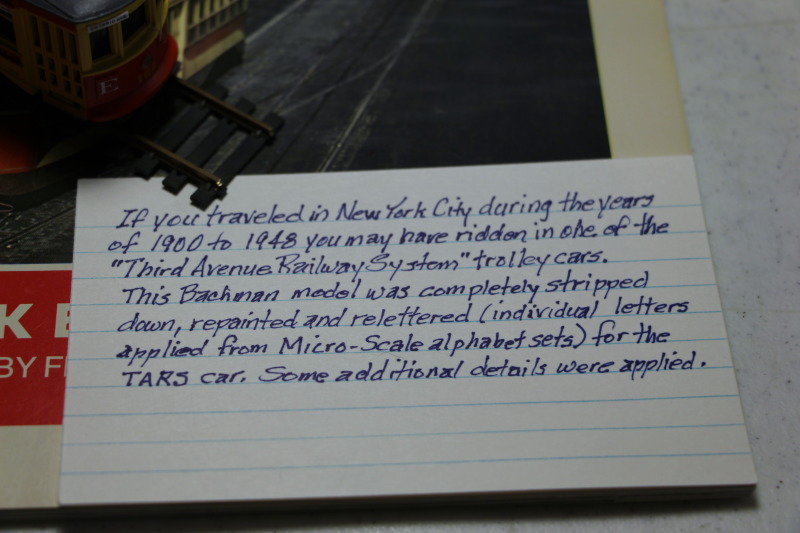 E
If you traveled in New York City during the years
of 1900 to 1948 you may have ridden in one of the
"Third Avenue Railway System" trolley cars.
This Bachman model was completely stripped
down, repainted and relettered (individual letters
applied from Micro-Scale alphabet sets) for the
TARS car. Some additional details were applied.
K E
BY F